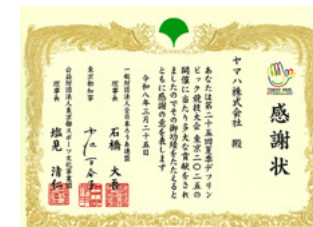 感謝状
ヤマハ株式会社 殿
あなたは第二十五回夏季デフリン
ピック競技大会 東京二〇二五の
開催に当たり多大な貢献をされ
ましたのでその御功績をたたえると
ともに感謝の意を表します
令和八年三月二十五日
一般財団法人全日本ろうあ連盟
理事長 石橋 大吾
東京都知事 小池百合子
公益財団法人東京都スポーツ文化事業団
理事長 塩見 清仁